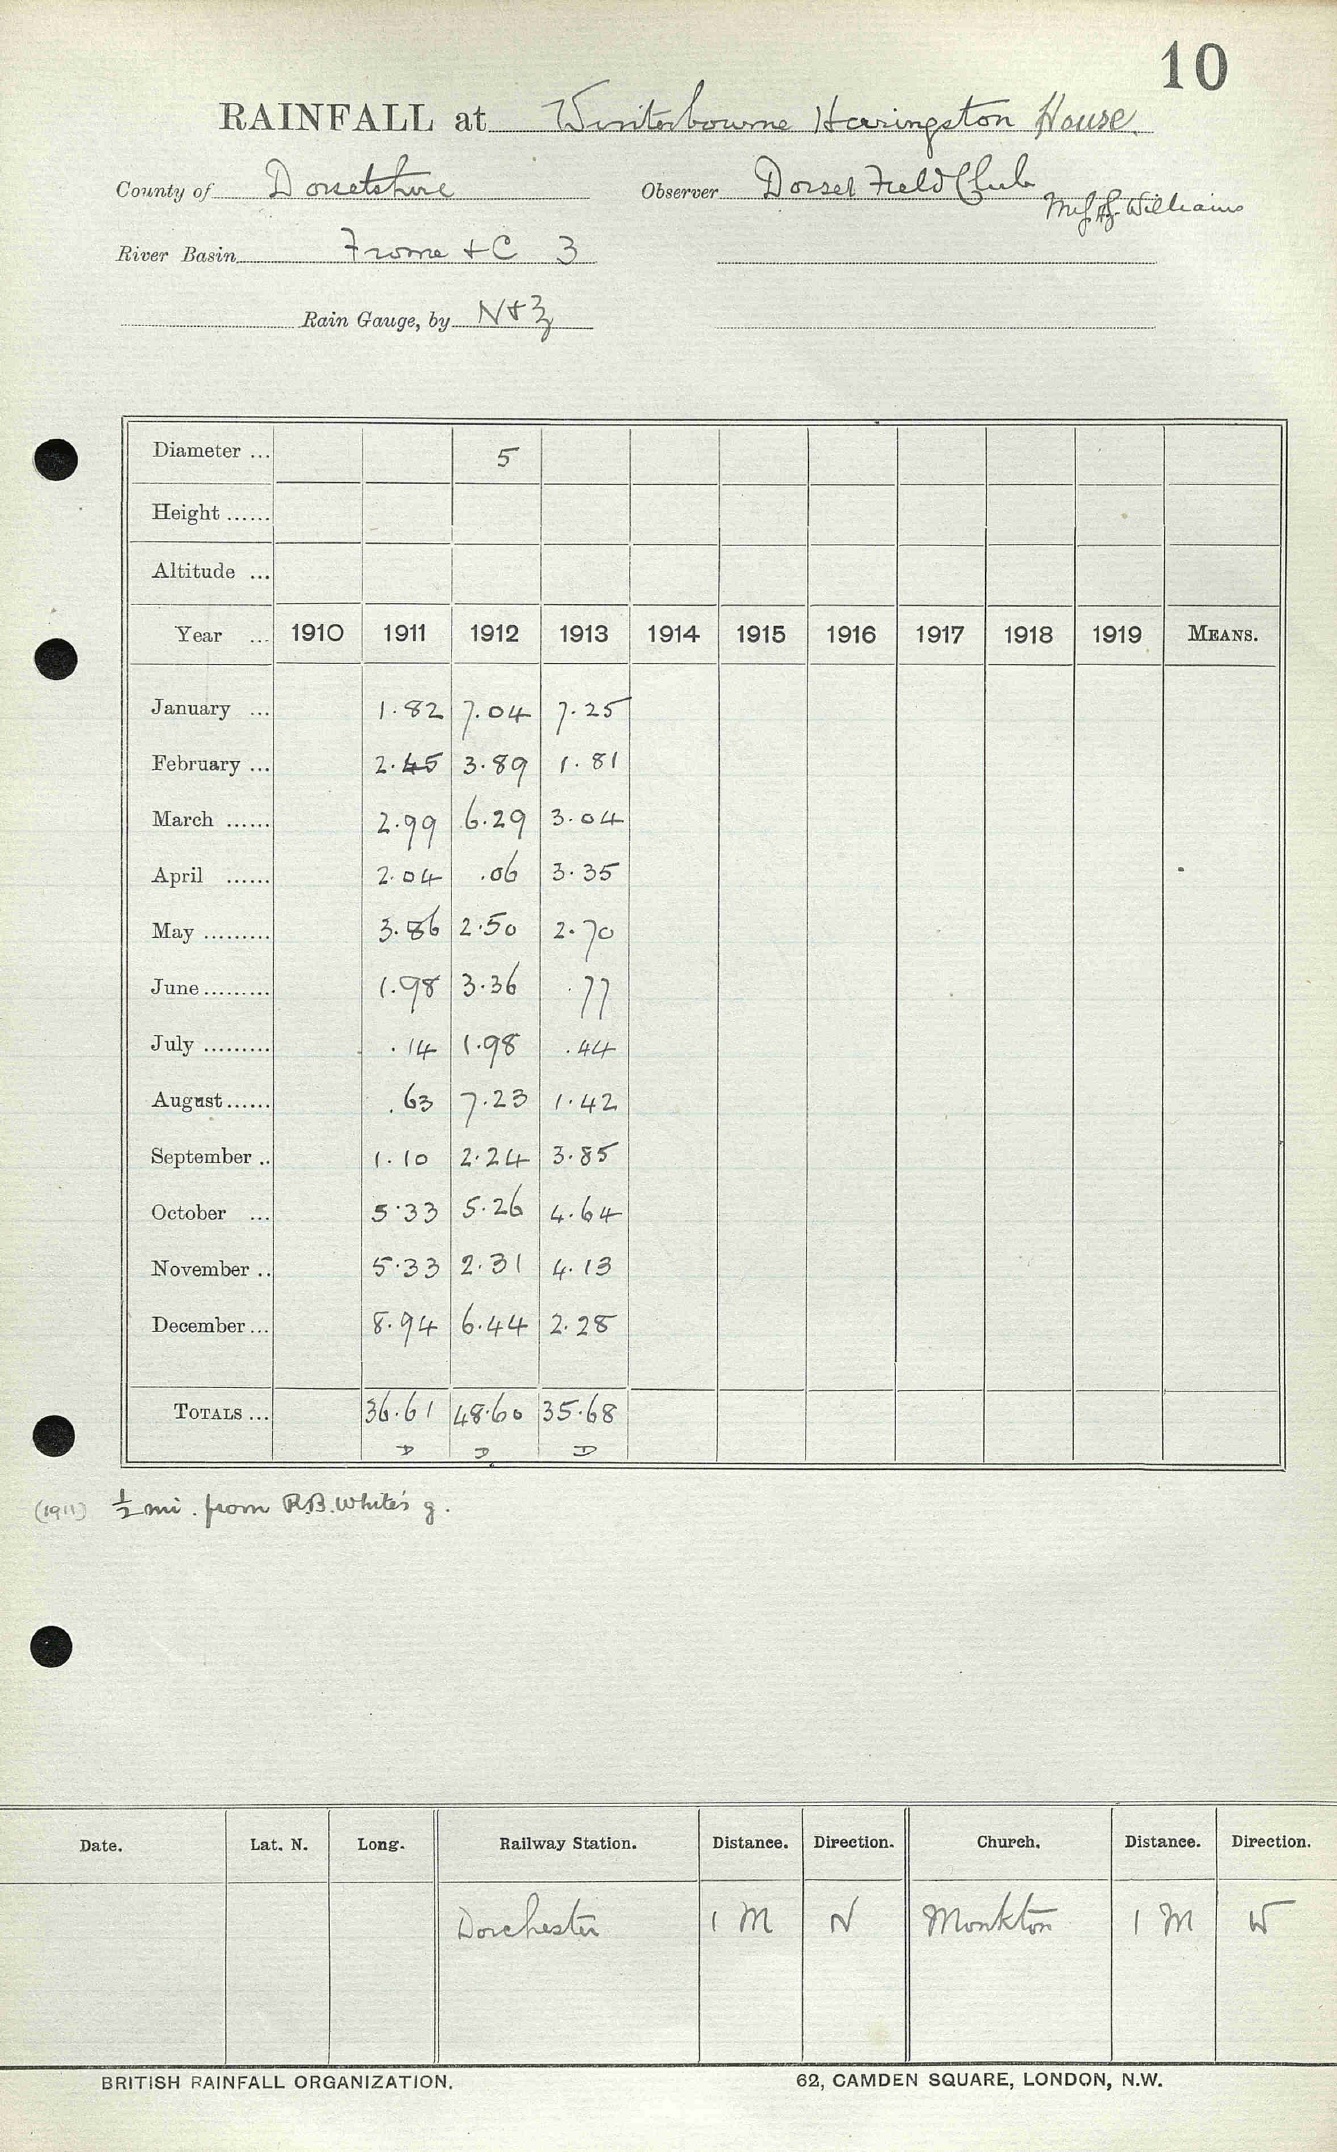 10
RAINFALL at Winterbourne Herringston House
County of Dorsetshire Observer Dorset Field Club
Williams
River Basin Frome + C 3
Rain Gauge, by N+Z
Diameter ... 5
Height ......
Altitude ...
Year ... 1910 1911 1912 1913 1914 1915 1916 1917 1918 1919 MEANS.
January ... 1.82 7.04 7.25
February ... 2.45 3.89 1.81
March ...... 2.99 6.29 3.04
April ...... 2.04 .06 3.35
May ......... 3.86 2.50 2.70
June ......... 1.98 3.36 .77
July ......... .14 1.98 .44
August ...... .63 7.23 1.42
September .. 1.10 2.24 3.85
October ... 5.33 5.26 4.64
November .. 5.33 2.31 4.13
December ... 8.94 6.44 2.28
TOTALS ... 36.61 48.60 35.68
D D D
(1911) ½ mi. from R.B. White's g.
Date. Lat. N. Long. Railway Station. Distance. Direction. Church. Distance. Direction.
Dorchester 1 M N Monkton 1 M W
BRITISH RAINFALL ORGANIZATION. 62, CAMDEN SQUARE, LONDON, N.W.